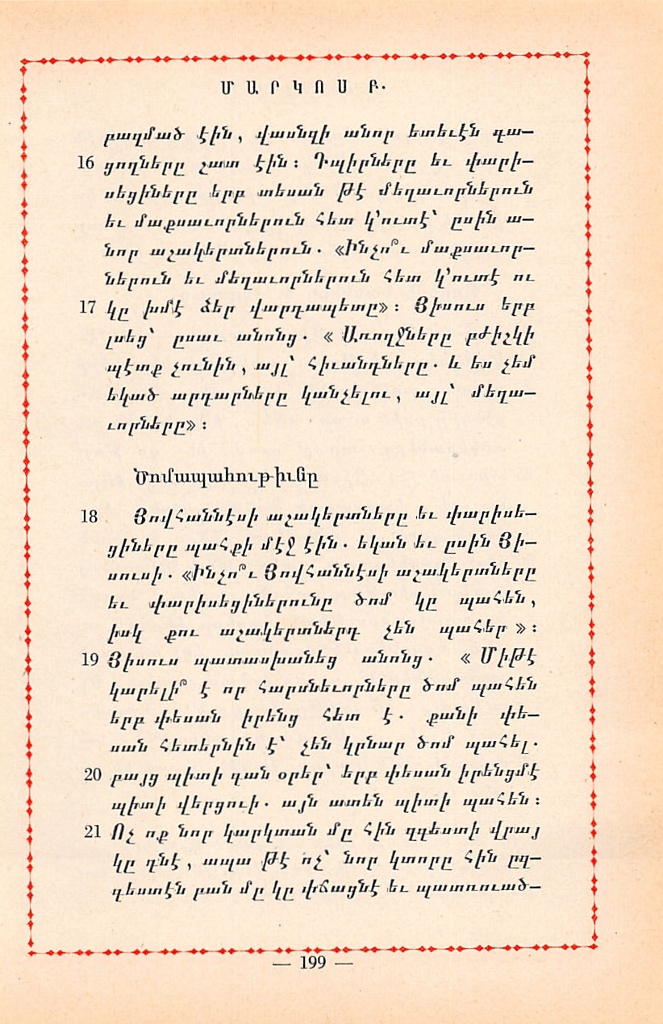 ՄԱՐԿՈՍ Բ.
բազմած էին, վասնզի անոր ետեւէն գա—
16 ցողները շատ էին։ Դպիրները եւ փարի—
սեցիները երբ տեսան թէ մեղաւորներուն
եւ մաքսաւորներուն հետ կ՚ուտէ՝ ըսին ա—
նոր աշակերտներուն. «Ինչո՞ւ մաքսաւոր—
ներուն եւ մեղաւորներուն հետ կ՚ուտէ ու
17 կը խմէ ձեր վարդապետը»։ Յիսուս երբ
լսեց՝ ըսաւ անոնց. « Առողջները բժիշկի
պէտք չունին, այլ՝ հիւանդները. և ես չեմ
եկած արդարները կանչելու, այլ՝ մեղա—
ւորները»։
Ծոմապահութիւնը
18 Յովհաննէսի աշակերտները եւ փարիսե—
ցիները պահքի մէջ էին. եկան եւ ըսին Յի—
սուսի. «Ինչո՞ւ Յովհաննէսի աշակերտները
եւ փարիսեցիներունը ծոմ կը պահեն,
իսկ քու աշակերտներդ չեն պահեր »։
19 Յիսուս պատասխանեց անոնց. « Միթէ
կարելի՞ է որ հարսնեւորները ծոմ պահեն
երբ փեսան իրենց հետ է. քանի փե—
սան հետերնին է՝ չեն կրնար ծոմ պահել.
20 բայց պիտի գան օրեր՝ երբ փեսան իրենցմէ
պիտի վերցուի. այն ատեն պիտի պահեն։
21 Ոչ ոք նոր կարկտան մը հին զգեստի վրայ
կը դնէ, ապա թէ ոչ՝ նոր կտորը հին ըզ—
գեստէն բան մը կը փճացնէ եւ պատռուած—
— 199 —